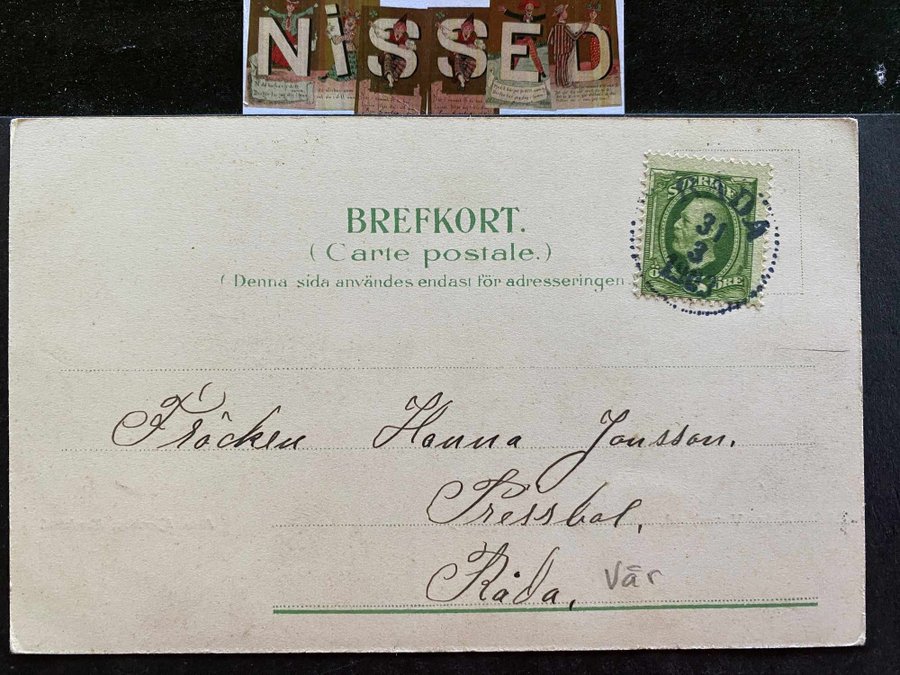 NISSED
BREFKORT.
(Carte postale.)
(Denna sida användes endast för adresseringen.
SVERIGE
RÅDA
31
3
ÖRE
Fröcken Hanna Jonsson.
Pressbol,
Råda, Vär